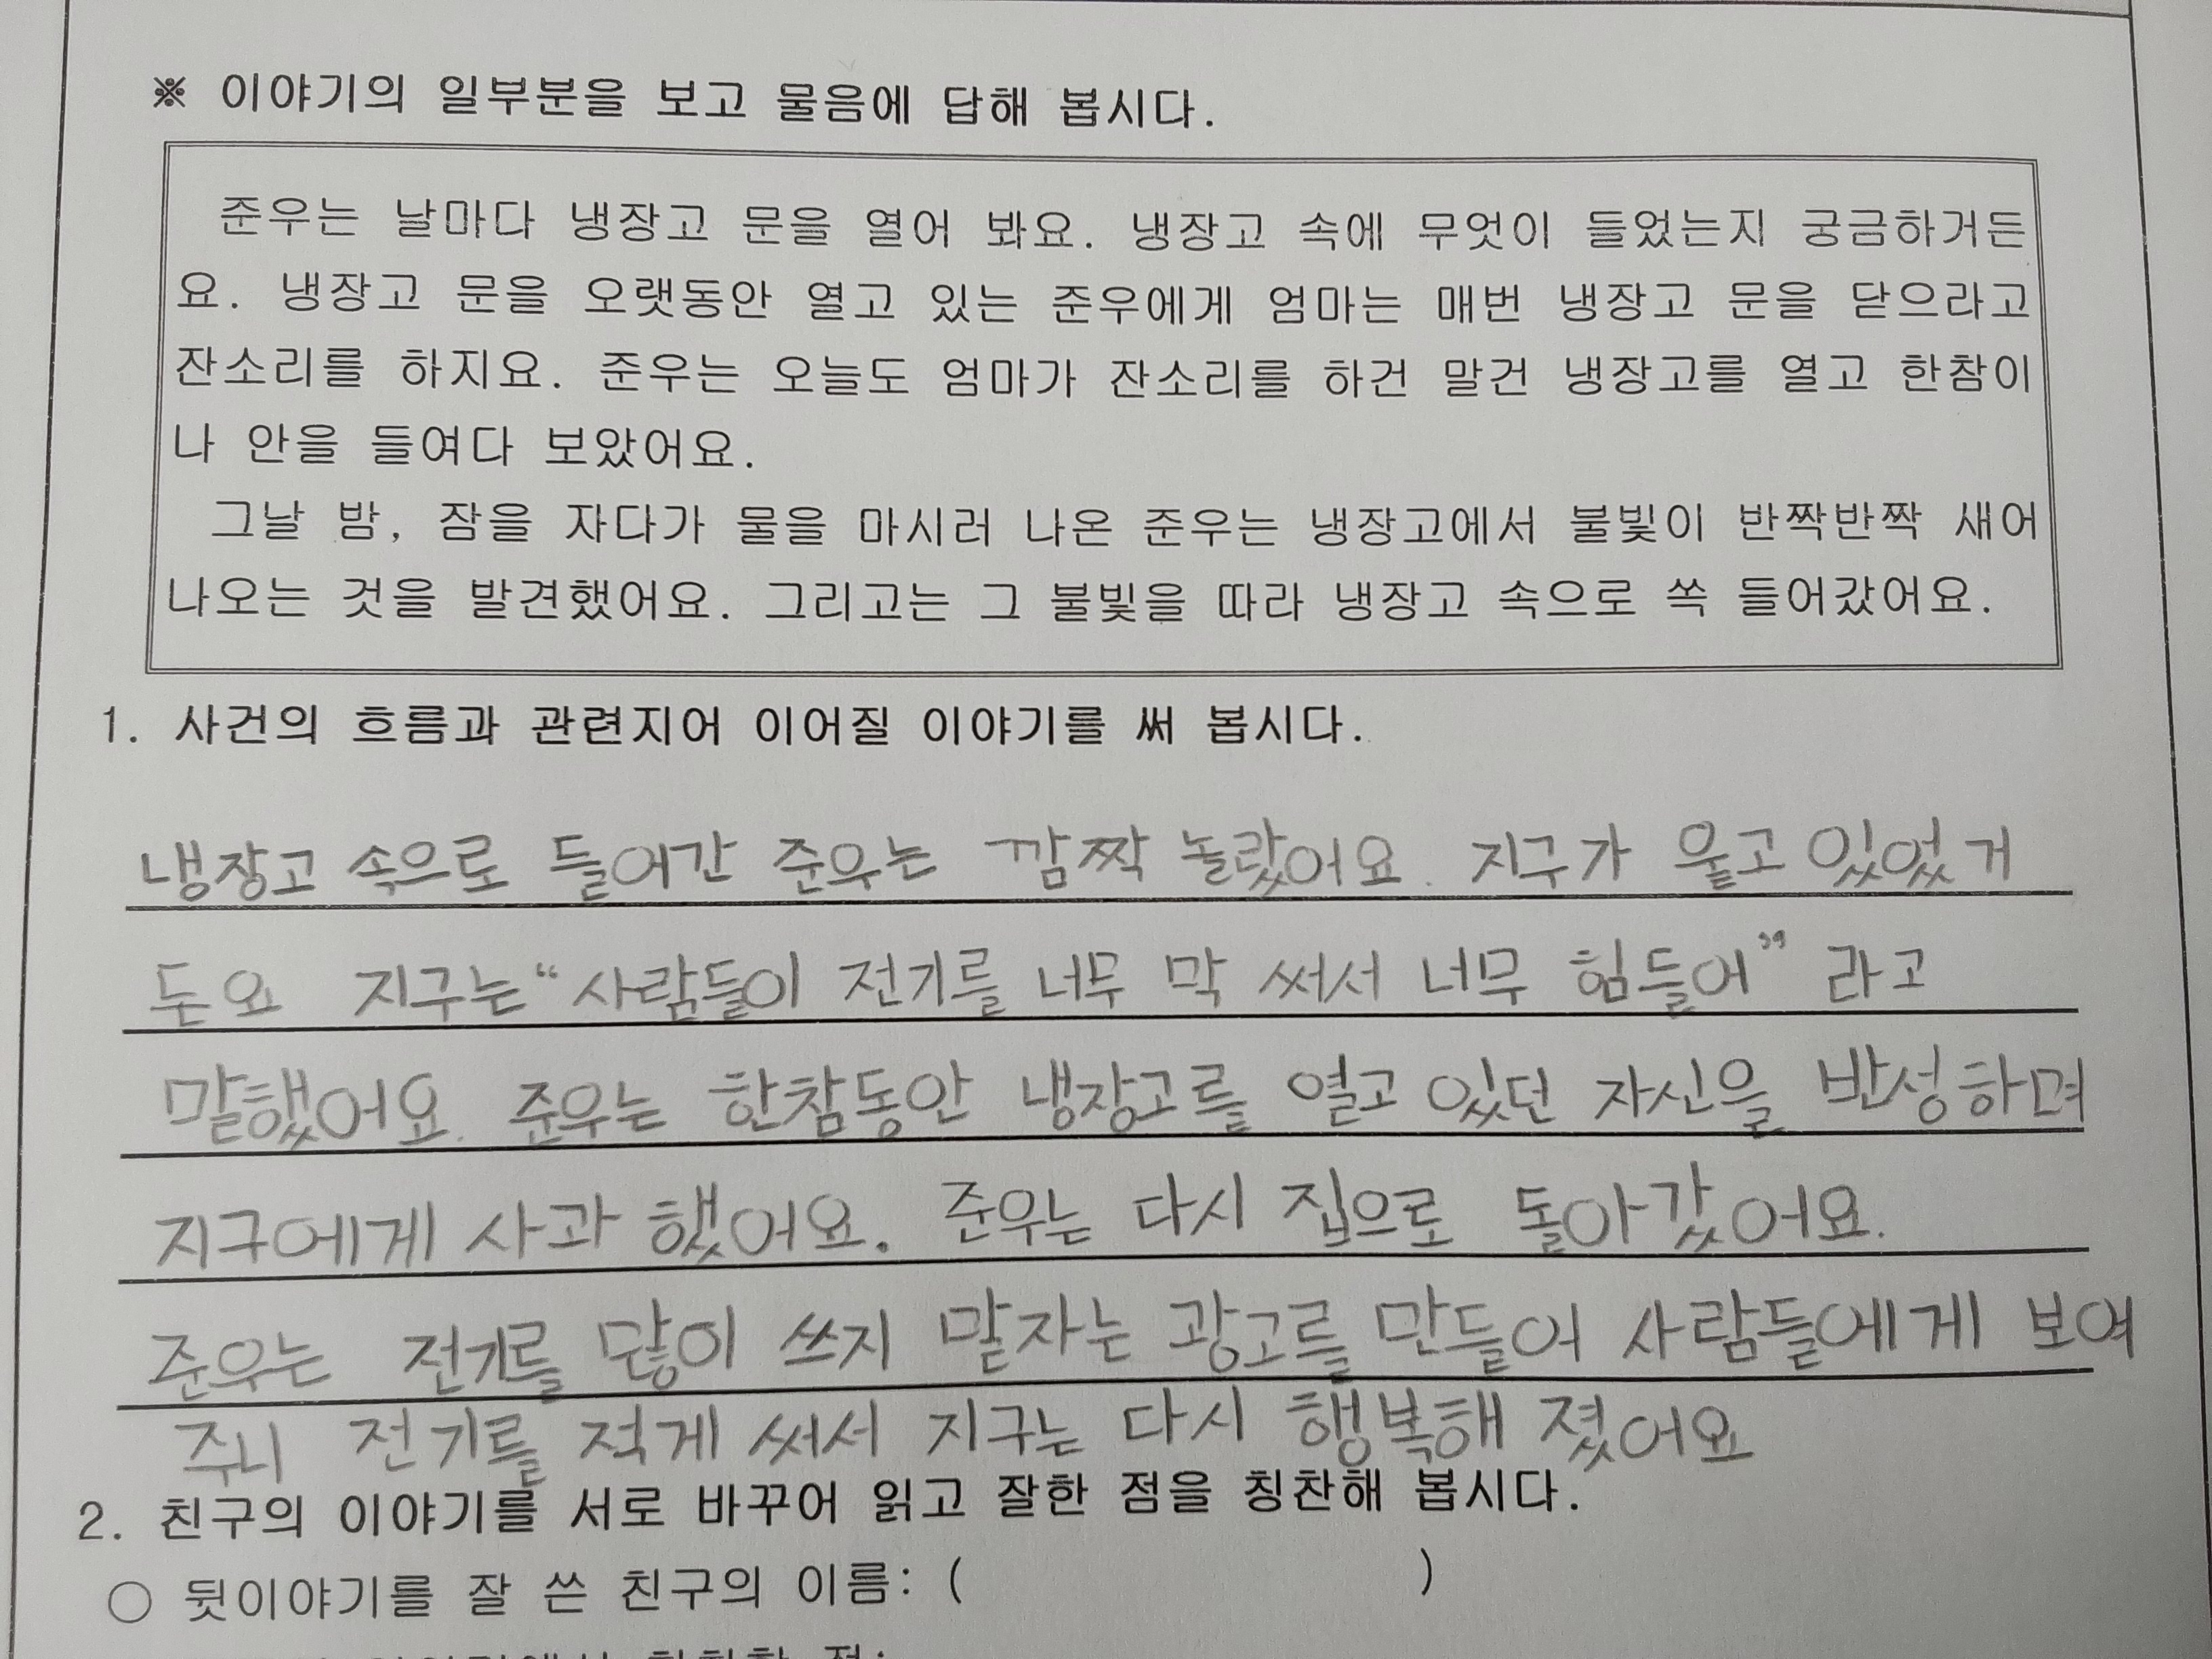 ※ 이야기의 일부분을 보고 물음에 답해 봅시다.
준우는 날마다 냉장고 문을 열어 봐요. 냉장고 속에 무엇이 들었는지 궁금하거든
요. 냉장고 문을 오랫동안 열고 있는 준우에게 엄마는 매번 냉장고 문을 닫으라고
잔소리를 하지요. 준우는 오늘도 엄마가 잔소리를 하건 말건 냉장고를 열고 한참이
나 안을 들여다 보았어요.
그날 밤, 잠을 자다가 물을 마시러 나온 준우는 냉장고에서 불빛이 반짝반짝 새어
나오는 것을 발견했어요. 그리고는 그 불빛을 따라 냉장고 속으로 쏙 들어갔어요.
1. 사건의 흐름과 관련지어 이어질 이야기를 써 봅시다.
냉장고 속으로 들어간 준우는 깜짝 놀랐어요. 지구가 울고 있었거
든요 지구는 “사람들이 전기를 너무 막 써서 너무 힘들어” 라고
말했어요. 준우는 한참동안 냉장고를 열고 있던 자신을 반성하며
지구에게 사과 했어요. 준우는 다시 집으로 돌아갔어요.
준우는 전기를 많이 쓰지 말자는 광고를 만들어 사람들에게 보여
주니 전기를 적게 써서 지구는 다시 행복해 졌어요
2. 친구의 이야기를 서로 바꾸어 읽고 잘한 점을 칭찬해 봅시다.
○ 뒷이야기를 잘 쓴 친구의 이름: ( )
점: